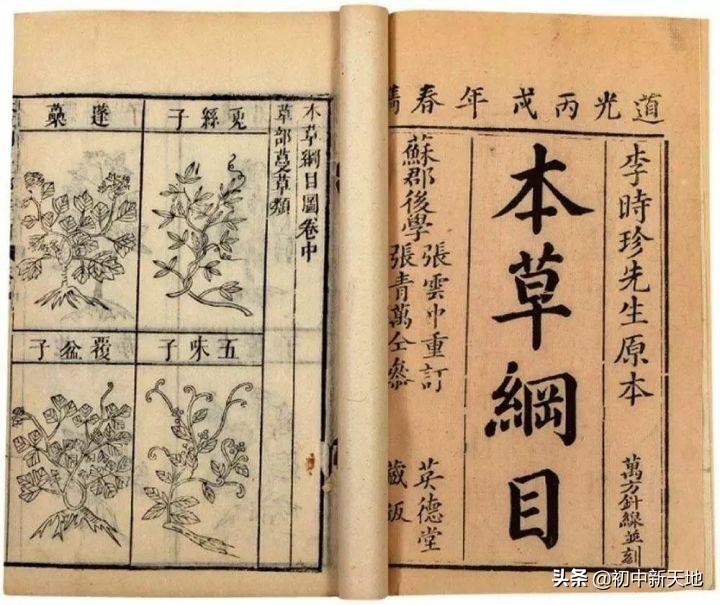 道光丙戌年春鐫
李時珍先生原本
萬方針線並刻
本草綱目
蘇郡後學
張雲中重訂
張青萬仝參
英德堂
藏版
本草綱目圖卷中
草部蔓草類
兎絲子
蓬蘽
五味子
覆盆子
头条 @初中新天地